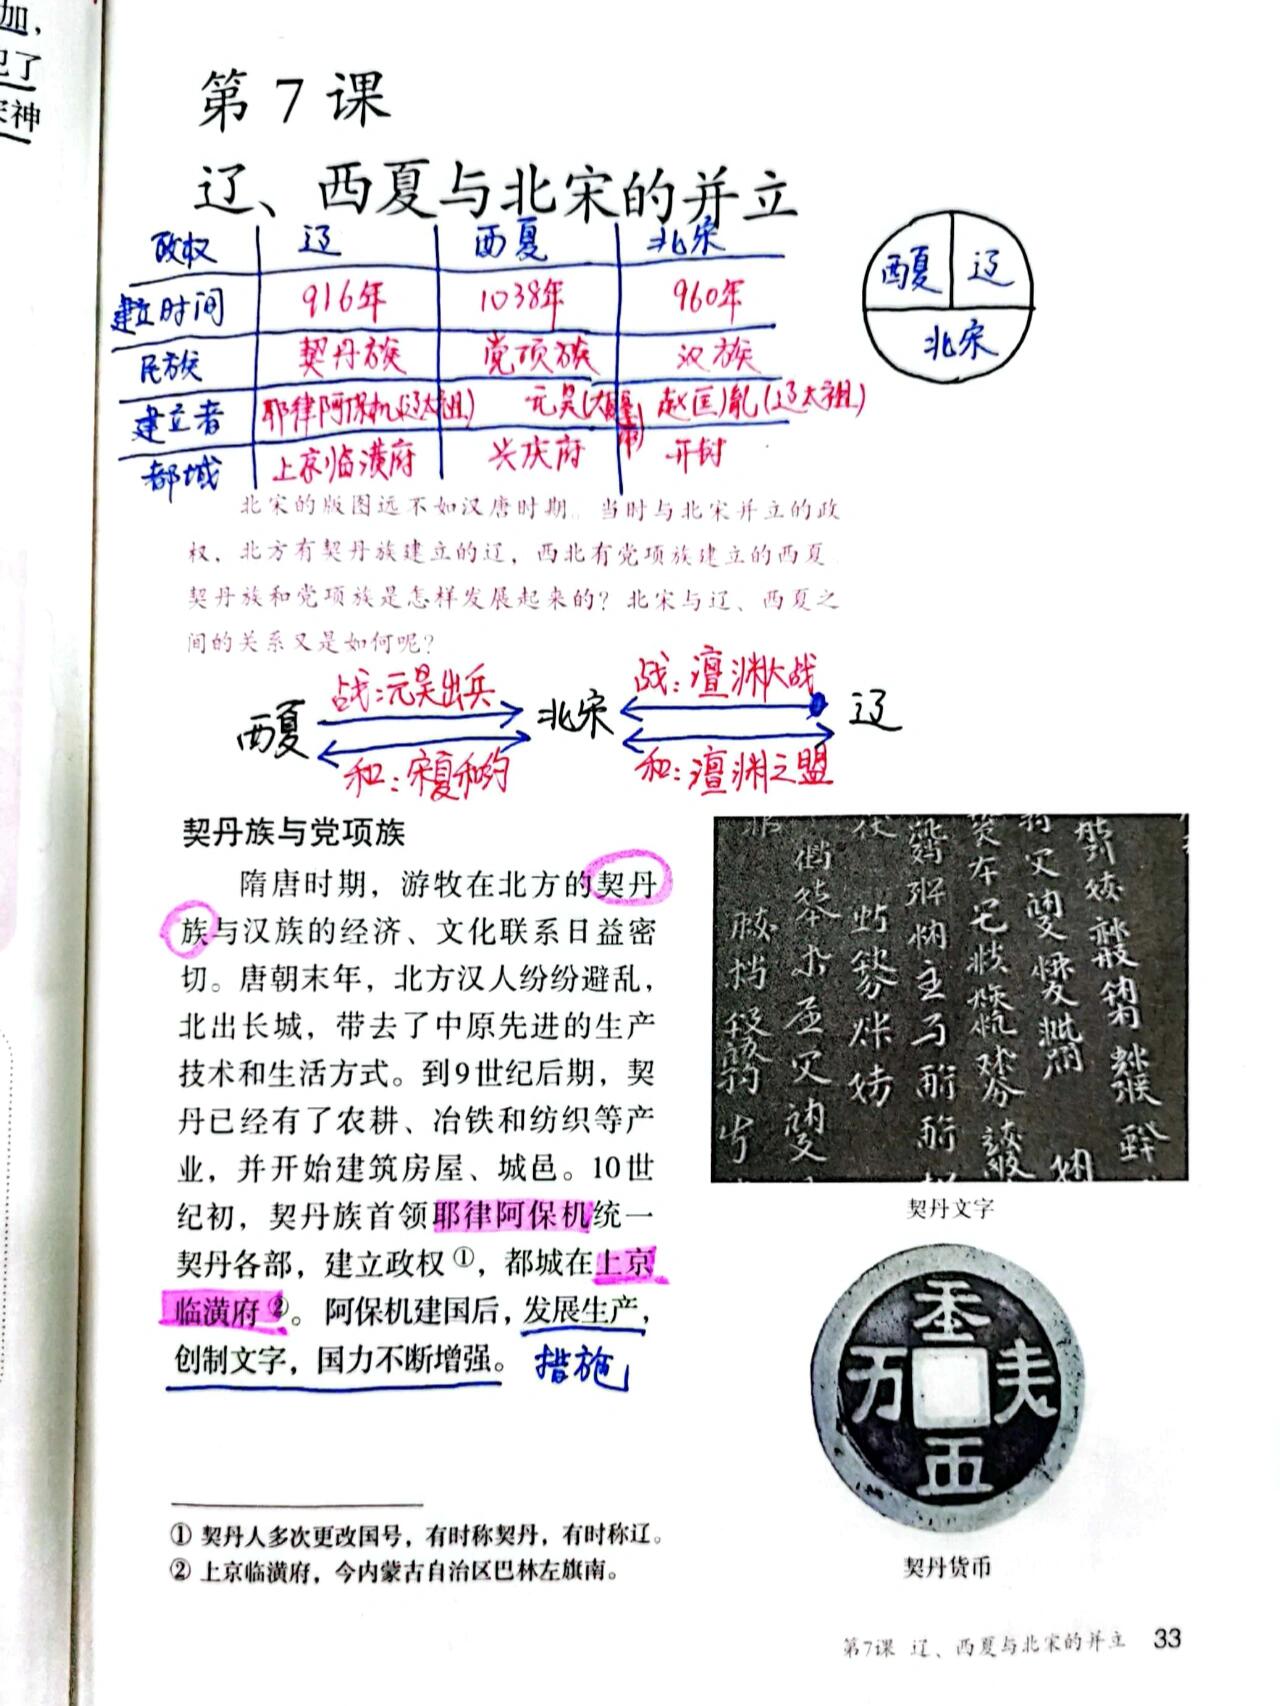 加,
已了
宋神
第7课
辽、西夏与北宋的并立
政权 辽 西夏 北宋
建立时间 916年 1038年 960年
民族 契丹族 党项族 汉族
建立者 耶律阿保机(辽太祖) 元昊(大夏皇帝) 赵匡胤(辽太祖)
都城 上京临潢府 兴庆府 开封
西夏 辽
北宋
北宋的版图远不如汉唐时期。当时与北宋并立的政
权，北方有契丹族建立的辽，西北有党项族建立的西夏。
契丹族和党项族是怎样发展起来的？北宋与辽、西夏之
间的关系又是如何呢？
战:元昊出兵 战:澶渊大战
西夏 北宋 辽
和:宋夏和约 和:澶渊之盟
契丹族与党项族
隋唐时期，游牧在北方的契丹
族与汉族的经济、文化联系日益密
切。唐朝末年，北方汉人纷纷避乱，
北出长城，带去了中原先进的生产
技术和生活方式。到9世纪后期，契
丹已经有了农耕、冶铁和纺织等产
业，并开始建筑房屋、城邑。10世
纪初，契丹族首领耶律阿保机统一
契丹各部，建立政权①，都城在上京
临潢府②。阿保机建国后，发展生产，
创制文字，国力不断增强。 措施
契丹文字
契丹货币
① 契丹人多次更改国号，有时称契丹，有时称辽。
② 上京临潢府，今内蒙古自治区巴林左旗南。
第7课 辽、西夏与北宋的并立 33